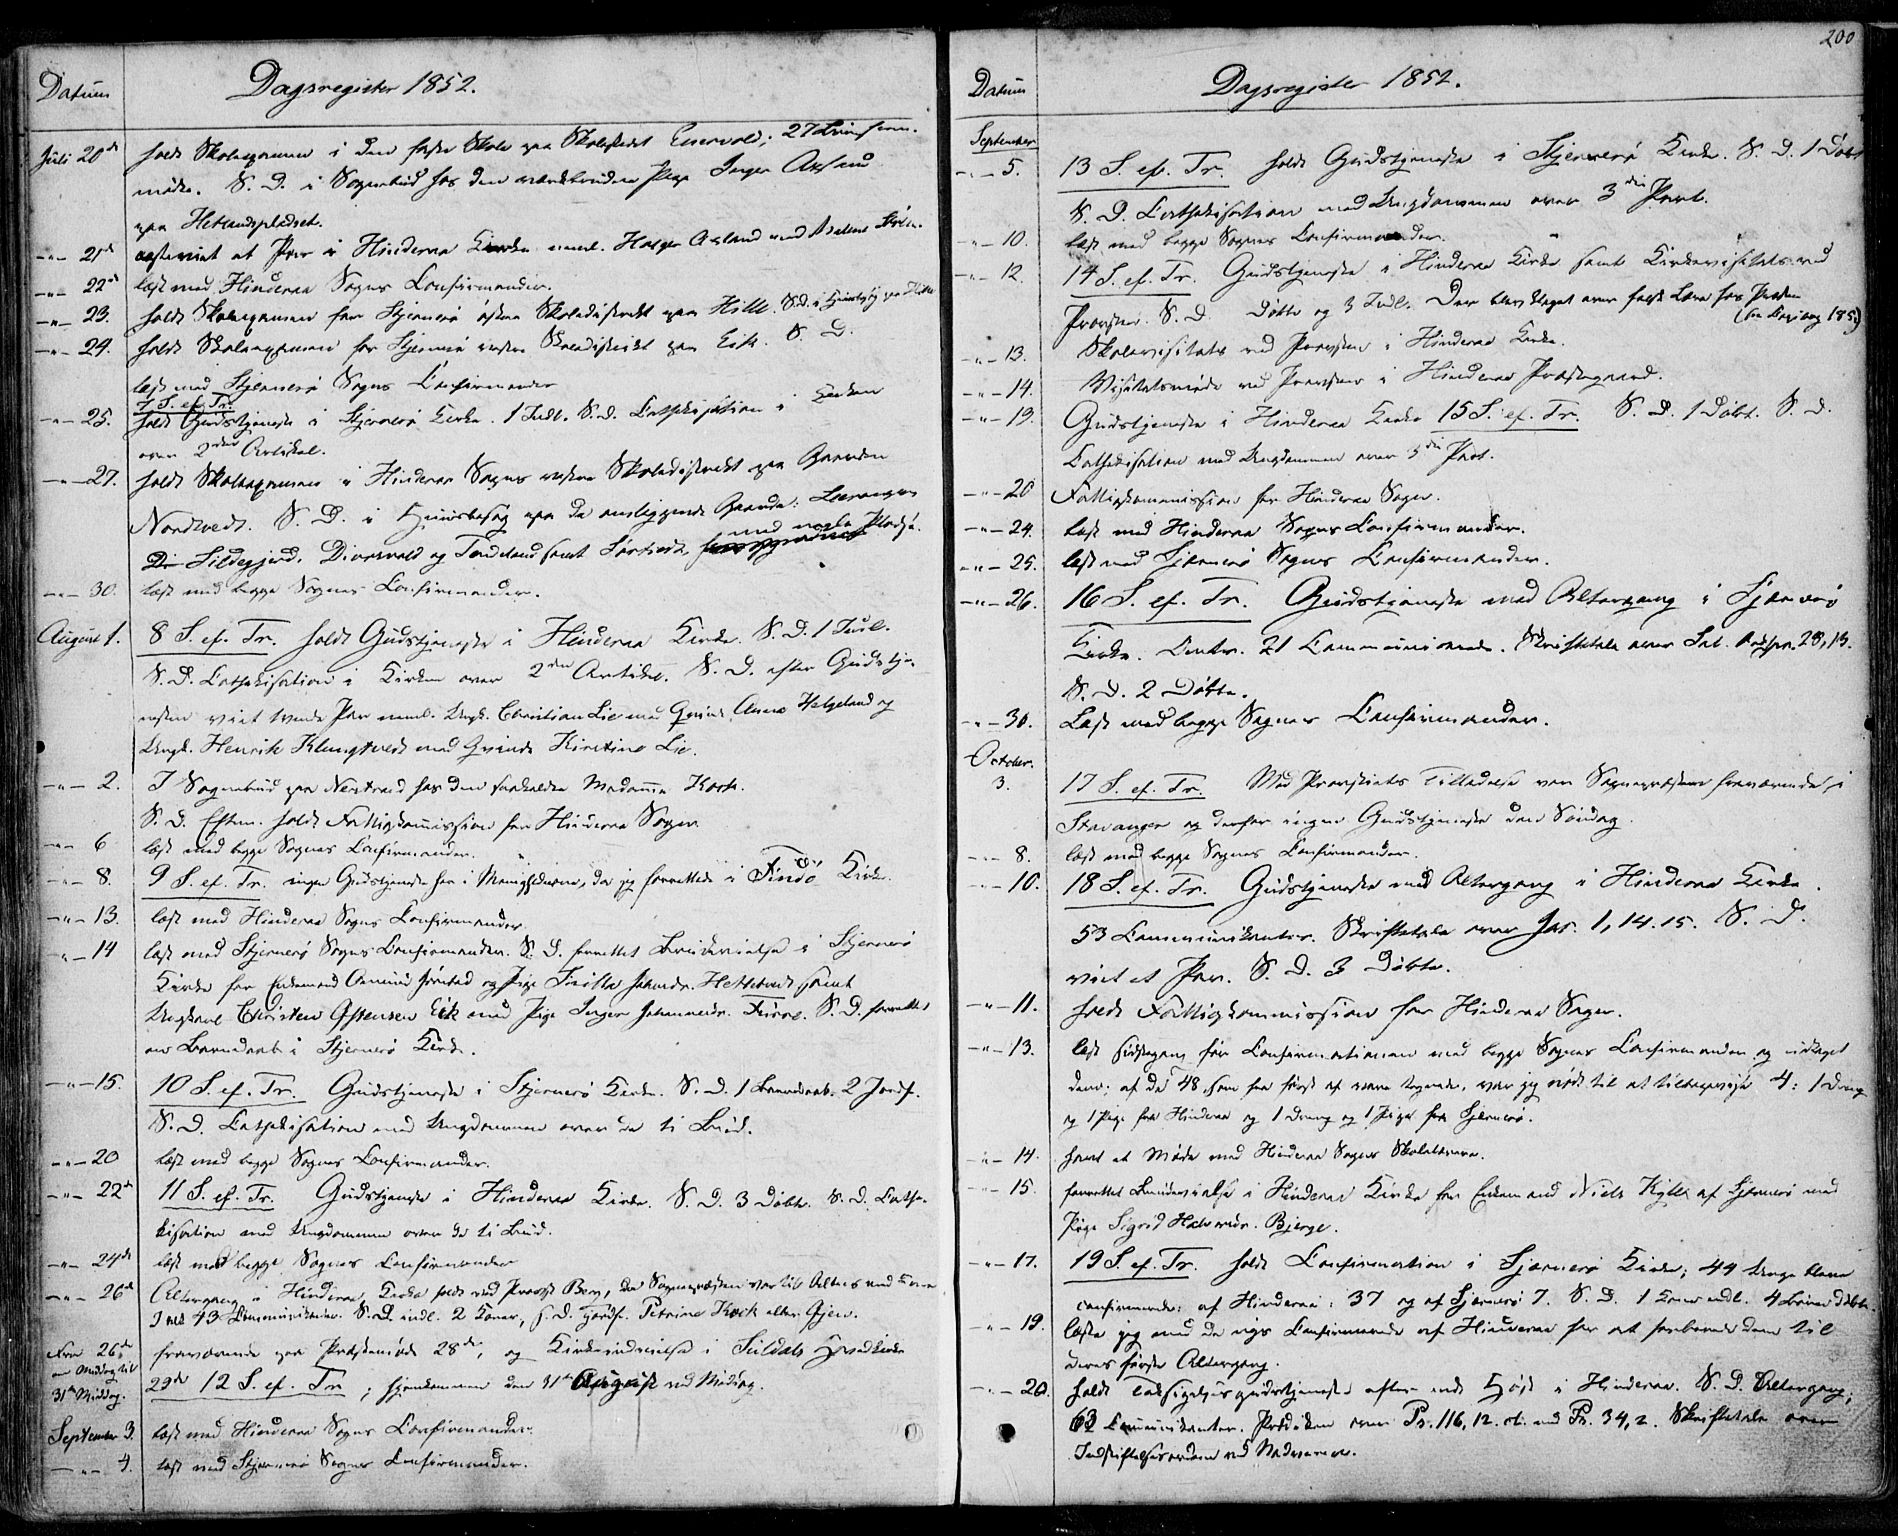 Datum Dagsregister 1852.
Juli 20de holdt Skoleexamen i den faste Skole paa Skolestedet ; 27 Børn frem-
mødte. S. D. i Sognebud hos den Pige Inger Axland
paa Hetlandspladset.
-"- 21de et Par i Hinderaa Kirke neml. Holger Axland med
-"- 22de læst med Hinderaa Sogns Confirmander.
-"- 23. holdt Skoleexamen for Stjernerø østre Skoledistrikt paa Hille. S. D. i Huusbesøg paa Hille
-"- 24. holdt Skoleexamen for Stjernerø vestre Skoledistrikt paa Eik. S. D.
læst med Stjernerø Sogns Confirmander
7 S. ef. Tr.
-"- 25. holdt Gudstjeneste i Stjernerø Kirke. 1 Indl. S. D. Cathekisation i Kirken
over 2den Artikel.
-"- 27. holdt Skoleexamen i Hinderaa Sogns vestre Skoledistrikt paa Gaarden
Nordtvedt. S. D. i Huusbesøg paa de omliggende Gaarde:
med Pladse.
Sildegjerd, Diversvold og Tendeland samt Sørtvedt
-"- 30. læst med begge Sognes Confirmander.
August 1. 8 S. ef. Tr. holdt Gudstjeneste i Hinderaa Kirke. S. D. 1 Indl.
S. D. Cathekisation i Kirken over 2den Artikel. S. D. efter Gudstje-
nesten viet tvende Par neml. Ungk. Christian Lie med Qvinde Anna Helgeland og
Ungk. Henrik Klungtvedt med Qvinde Kirstine Lie.
-"- 2. I Sognebud paa Nerstrand hos den Madame Koch.
S. D. Efterm. holdt Fattigkommission for Hinderaa Sogn
-"- 6 læst med begge Sognes Confirmander.
-"- 8. 9 S. ef. Tr. ingen Gudstjeneste her i Menighederne, da jeg forrettede i Findø Kirke.
-"- 13. læst med Hinderaa Sogns Confirmander
-"- 14 læst med Stjernerø Sogns Confirmander. S. D. forrettet Brudevielse i Stjernerø
Kirke for Enkemand og Pige Hettetvedt samt
Ungkarl Christen Østensen Eik med Pige Inger Johannesdr. S. D. forrettet
en Barnedaab i Stjernerø Kirke.
-"- 15. 10 S. ef. Tr. Gudstjeneste i Stjernerø Kirke. S. D. 1 Barnedaab. 2 Jordf.
S. D. Cathekisation med Ungdommen over de ti Bud.
-"- 20 læst med begge Sognes Confirmander.
-"- 22de 11 S. ef. Tr. Gudstjeneste i Hinderaa Kirke. S. D. 3 Døbte. S. D. Cathe-
kisation med Ungdommen over de ti Bud.
-"- 24de læst med begge Sognes Confirmander
-"- 26de Altergang i Hinderaa Kirke holdt ved Provst Berg, da Sognepræsten var til Alters med
43 Communikanter. S. D. indl. 2 Koner, s. D. Jordf. Petrine Koch
Fra 26de fraværende paa Præstemøde 28de, og Kirkeindvielse i Suldals Hovedkirke
om Middag til
31te Middag. 29de 12 S. ef. Tr.; hjemkommen den 31te August ved Middag.
September 3. læst med Hinderaa Sogns Confirmander.
-"- 4. læst med Stjernerø Sogns Confirmander.
200
Datum Dagsregister 1852.
September
-"- 5. 13 S. ef. Tr. holdt Gudstjeneste i Stjernerø Kirke. S. D. 1 Døbt
S. D. Cathekisation med Ungdommen over 3die Part.
-"- 10. læst med begge Sognes Confirmander.
-"- 12. 14 S. ef. Tr. Gudstjeneste i Hinderaa Kirke samt Kirkevisitats ved
Provsten. S. D. Døbte og 3 Indl. Der blev klaget over falsk Lære hos Præsten
-"- 13. Skolevisitats ved Provsten i Hinderaa Kirke.
-"- 14. Visitatsmøde ved Provsten i Hinderaa Præstegaard.
-"- 19. Gudstjeneste i Hinderaa Kirke 15 S. ef. Tr. S. D. 1 Døbt. S. D.
Cathekisation med Ungdommen over 3die Part.
-"- 20 Fattigkommission for Hinderaa Sogn.
-"- 24. læst med Hinderaa Sogns Confirmander.
-"- 25. læst med Sjernerø Sogns Confirmander.
-"- 26. 16 S. ef. Tr. Gudstjeneste med Altergang i Sjernerø
Kirke. 21 Communicerede. Skriftetale over Sal. Ordspr. 28, 13.
S. D. 2 Døbte.
-"- 30. Læst med begge Sognes Confirmander.
October.
3. 17 S. ef. Tr. Med Provstiets Tilladelse var Sognepræsten fraværende i
Stavanger og derfor ingen Gudstjeneste den Søndag.
-"- 8. læst med begge Sognes Confirmander.
-"- 10. 18 S. ef. Tr. Gudstjeneste med Altergang i Hinderaa Kirke.
53 Communikanter. Skriftetale over Jac. 1, 14. 15. S. D.
viet et Par. S. D. 3 Døbte.
-"- 11. holdt Fattigkommission for Hinderaa Sogn.
-"- 13. læst sidstegang før Confirmationen med begge Sognes Confirmander og udtaget
dem; af de 48, som havde været tegnede, var jeg nødt til at tilbagevise 4: 1 Dreng
og 1 Pige fra Hinderaa og 1 Dreng og 1 Pige fra Sjernerø.
-"- 14. havt et Møde med Hinderaa Sogns Skolelærere.
-"- 15. forrettet Brudevielse i Hinderaa Kirke for Enkemand Niels Kigte af Sjernerø med
Pige Sigrid Halvorsdr. Bjerge.
-"- 17. 19 S. ef. Tr. holdt Confirmation i Sjernerø Kirke; 44 Unge bleve
confirmerede: af Hinderaa: 37 og af Sjernerø 7. S. D. 1 Kone indl. 4 Børn døbte.
-"- 19. læste jeg med de nys Confirmerede af Hinderaa for at forberede dem til
deres første Altergang.
-"- 20. holdt Taksigelsesgudstjeneste efter endt Høst i Hinderaa. S. D. Altergang;
63 Communikanter. Prædiken over Ps. 116, 12. ved Ps. 34, 2. Skriftetale over
Indstiftelsesordene ved Nadveren.